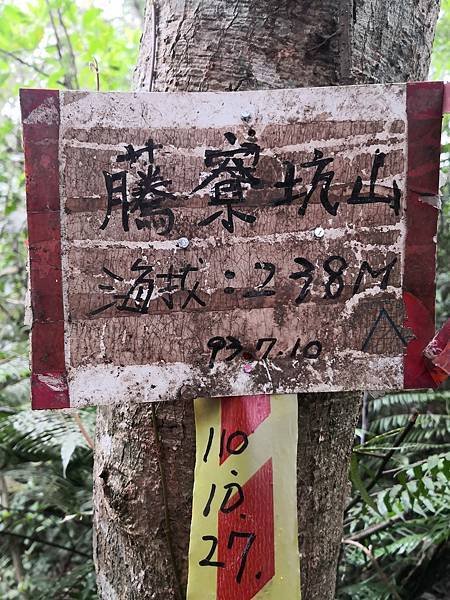 藤寮坑山
海拔:238M
93.7.10
110
10.
27.